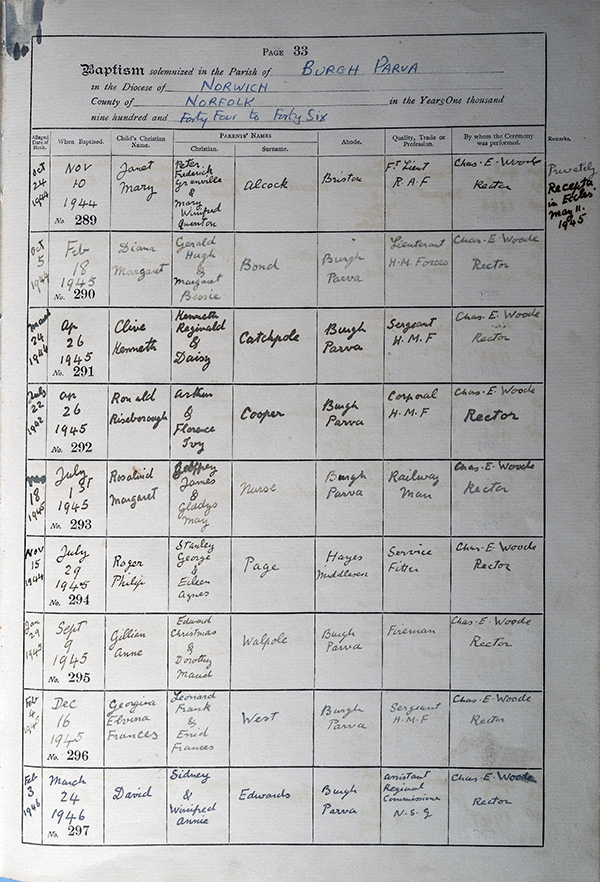 PAGE 33
Baptism solemnized in the Parish of BURGH PARVA
in the Diocese of NORWICH
County of NORFOLK in the Years One thousand
nine hundred and Forty Four to Forty Six
Alleged Date of Birth.
When Baptised.
Child's Christian Name.
PARENTS' NAMES
Christian.
Surname.
Abode.
Quality, Trade or Profession.
By whom the Ceremony was performed.
Remarks.
Oct
24
1944
Nov
10
1944
No. 289
Janet
Mary
Peter
Frederick
Grenville
&
Mary
Winifred
Quenton
Alcock
Briston
Ft Lieut
R.A.F
Chas. E. Woode
Rector
Privately
Recepta
in Eccles
May 11.
1945
Oct
5
1944
Feb
18
1945
No. 290
Diana
Margaret
Gerald
Hugh
&
Margaret
Bessie
Bond
Burgh
Parva
Lieutenant
H.M. Forces
Chas. E. Woode
Rector
March
24
1944
Ap
26
1945
No. 291
Clive
Kenneth
Kenneth
Reginald
&
Daisy
Catchpole
Burgh
Parva
Sergeant
H.M.F
Chas. E. Woode
Rector
July
22
1942
Ap
26
1945
No. 292
Ronald
Riseborough
Arthur
&
Florence
Ivy
Cooper
Burgh
Parva
Corporal
H.M.F
Chas. E. Woode
Rector
18
1945
July
1st
1945
No. 293
Rosalind
Margaret
Geoffrey
James
&
Gladys
May
Nurse
Burgh
Parva
Railway
Man
Chas. E. Woode
Rector
Nov
15
1944
July
29
1945
No. 294
Roger
Philip
Stanley
George
&
Eileen
Agnes
Page
Hayes
Middlesex
Service
Fitter
Chas. E. Woode
Rector
Jan
29
1945
Sept
9
1945
No. 295
Gillian
Anne
Edward
Christmas
&
Dorothy
Maud
Walpole
Burgh
Parva
Fireman
Chas. E. Woode
Rector
Feb
4
1945
Dec
16
1945
No. 296
Georgina
Elvina
Frances
Leonard
Frank
&
Enid
Frances
West
Burgh
Parva
Sergeant
H.M.F
Chas. E. Woode
Rector
Feb
3
1946
March
24
1946
No. 297
David
Sidney
&
Winifred
Annie
Edwards
Burgh
Parva
Assistant
Regional
Commissioner
N.S.G
Chas. E. Woode
Rector